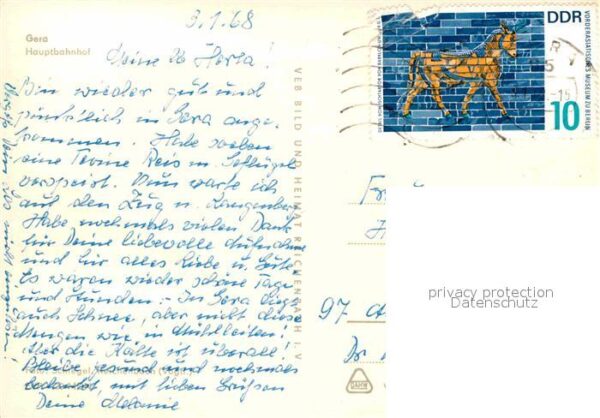 3.1.68
Gera
Hauptbahnhof
Meine lb Herta!
Bin wieder gut und
pünktlich in Gera ange-
kommen. Habe soeben
eine Terine Reis m. Geflügel
verspeist. Nun warte ich
auf den Zug n. Langenberg
Habe nochmals vielen Dank
für Deine liebevolle Aufnahme
und für alles Liebe u. Gute
Es waren wieder schöne Tage
und Stunden. - In Gera liegt
auch Schnee, aber nicht diese
Mengen wie in
Aber die Kälte ist überall!
Bleibe gesund und nochmals
bedankt, mit lieben Grüßen
Deine Melanie
VEB BILD UND HEIMAT REICHENBACH I. V.
DDR
10
VORDERASIATISCHES MUSEUM ZU BERLIN
97
Dr
privacy protection
Datenschutz